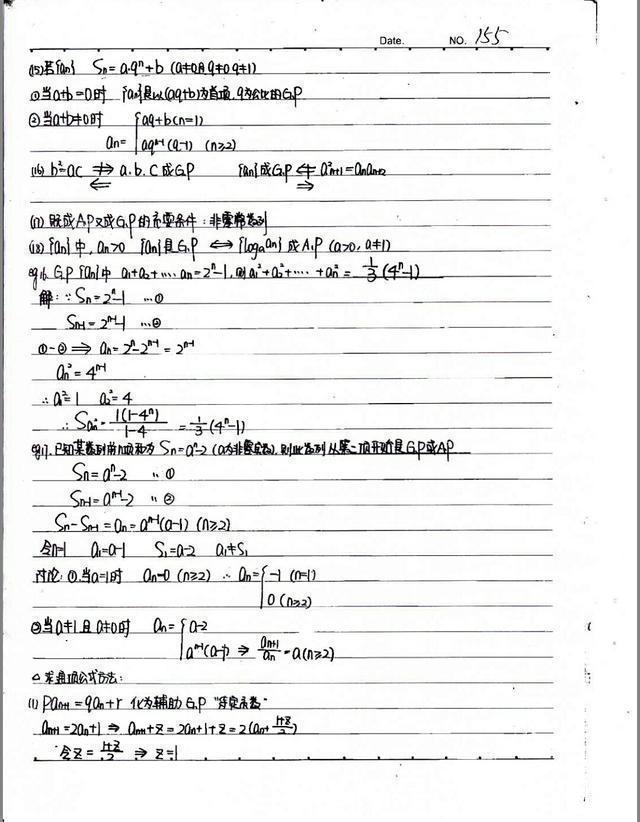 Date. NO. 155
(15) 若{an} Sn=a·qⁿ+b (a≠0且q≠0 q≠1)
①当a+b=0时 {an}是以(aq+b)为首项, q为公比的G.P
②当a+b≠0时 { aq+b (n=1)
an= aqⁿ⁻¹(q-1) (n≥2)
(16) b²=ac ⇏ a.b.c成G.P {an}成G.P ⇍ a²n+1=an an+2
⇐ ⇒
(17) 既成AP又成G.P的充要条件: 非零常数列
(18) {an}中, an>0 {an}是G.P ⇔ {logₐan}成A.P (a>0, a≠1)
eg16. G.P {an}中 a₁+a₂+…… an=2ⁿ-1, 则a₁²+a₂²+……+an²= 1/3(4ⁿ-1)
解: ∵Sn=2ⁿ-1 …①
Sn-1=2ⁿ⁻¹-1 …②
①-②⇒ an=2ⁿ-2ⁿ⁻¹=2ⁿ⁻¹
an²=4ⁿ⁻¹
∴a₁²=1 a₂²=4
∴San²= 1(1-4ⁿ)/(1-4) = 1/3(4ⁿ-1)
eg17. 已知某数列前n项和为 Sn=aⁿ-2 (a为非零常数), 则此数列从第二项开始是G.P或AP
Sn=aⁿ-2 …①
Sn-1=aⁿ⁻¹-2 …②
Sn-Sn-1=an=aⁿ⁻¹(a-1) (n≥2)
令n=1 a₁=a-1 S₁=a-2 a₁≠S₁
讨论: ①.当a=1时 an=0 (n≥2) ∴ an={ -1 (n=1)
0 (n≥2)
②当a≠1且a≠0时 an={ a-2
aⁿ⁻¹(a-1) ⇒ an+1/an=a(n≥2)
△求通项公式方法:
(1) Pan+1=qan+r 化为辅助G.P "待定系数"
an+1=2an+1 ⇒ an+1+z=2an+1+z=2(an+ (1+z)/2)
令z= (1+z)/2 ⇒ z=1